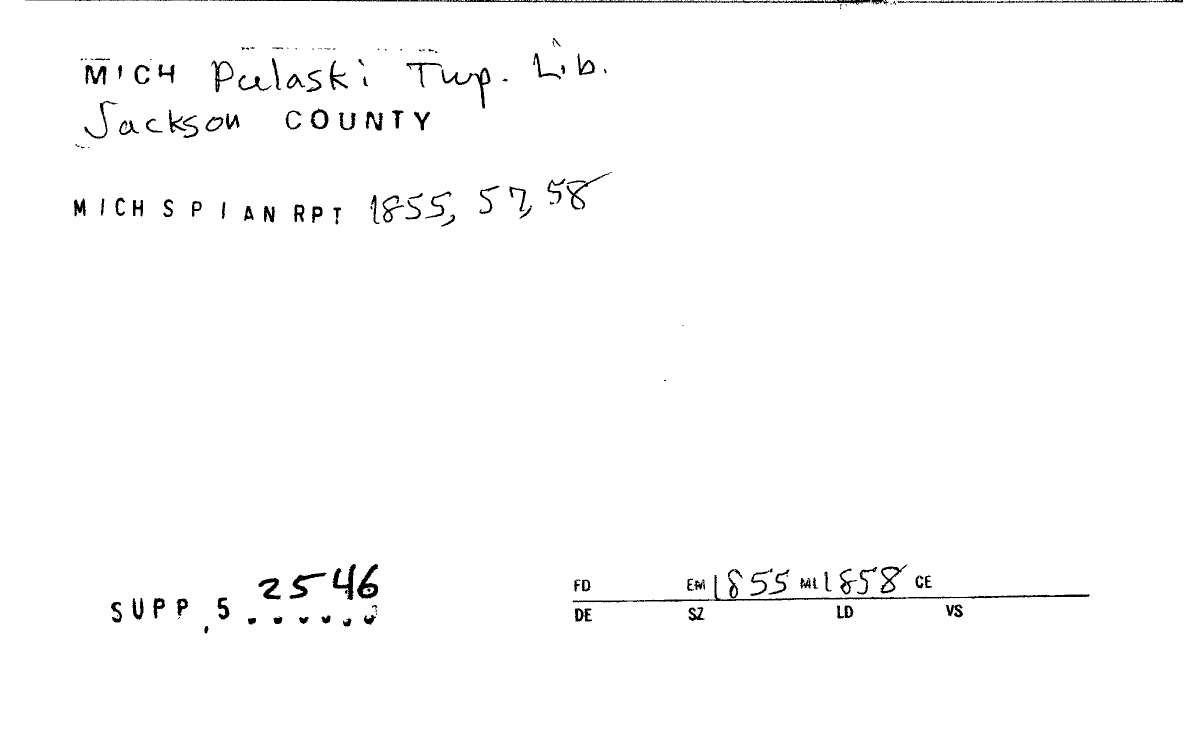 MICH Pulaski Twp. Lib.
Jackson COUNTY
MICH S P I AN RPT 1855, 57, 58
2546
SUPP, 5 . . . . . .
FD EM 1855 ML 1858 CE
DE SZ LD VS